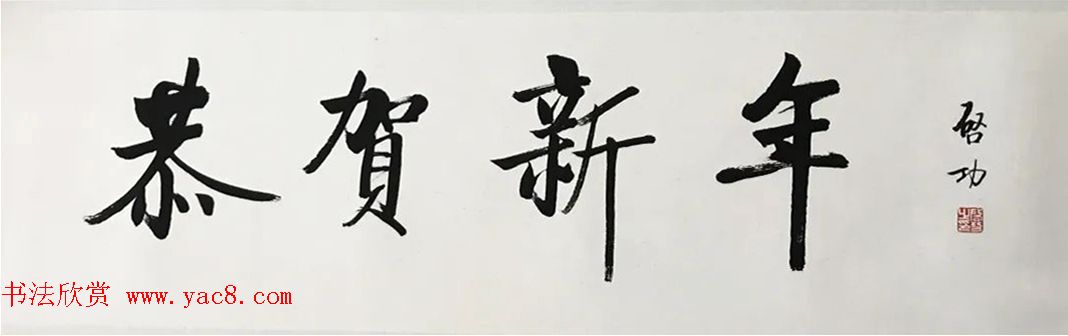 恭贺新年
启功
书法欣赏 www.yac8.com